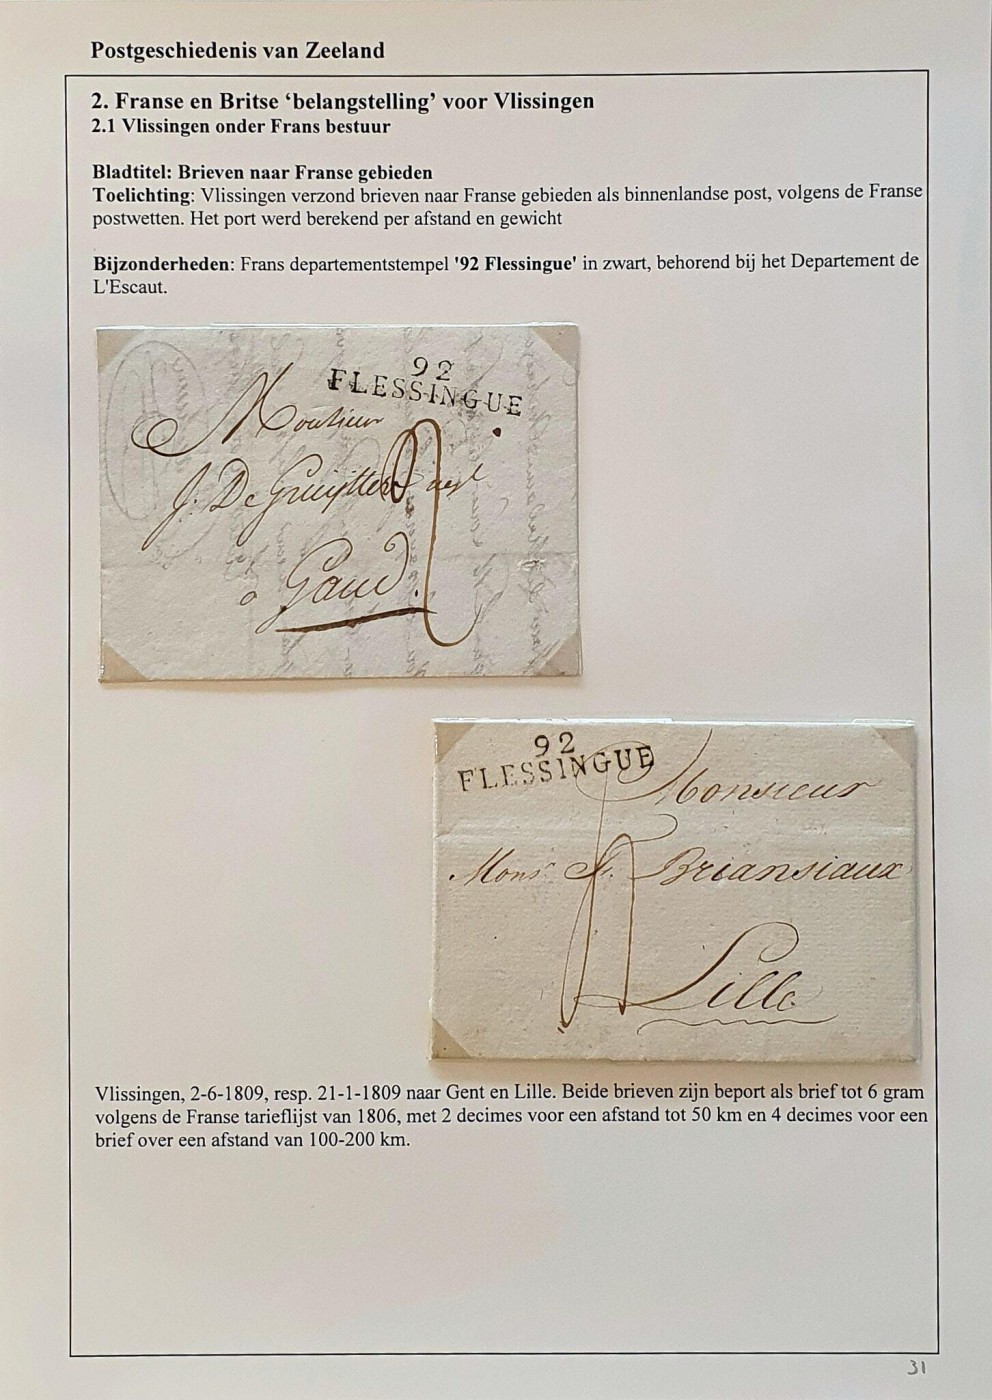 Postgeschiedenis van Zeeland
2. Franse en Britse ‘belangstelling’ voor Vlissingen
2.1 Vlissingen onder Frans bestuur
Bladtitel: Brieven naar Franse gebieden
Toelichting: Vlissingen verzond brieven naar Franse gebieden als binnenlandse post, volgens de Franse
postwetten. Het port werd berekend per afstand en gewicht
Bijzonderheden: Frans departementstempel '92 Flessingue' in zwart, behorend bij het Departement de
L'Escaut.
92
FLESSINGUE
Monsieur
J. De Gruijtter
à Gand.
2
92
FLESSINGUE
Monsieur
Mons. Fs. Briansiaux
Lille
Vlissingen, 2-6-1809, resp. 21-1-1809 naar Gent en Lille. Beide brieven zijn beport als brief tot 6 gram
volgens de Franse tarieflijst van 1806, met 2 decimes voor een afstand tot 50 km en 4 decimes voor een
brief over een afstand van 100-200 km.
31